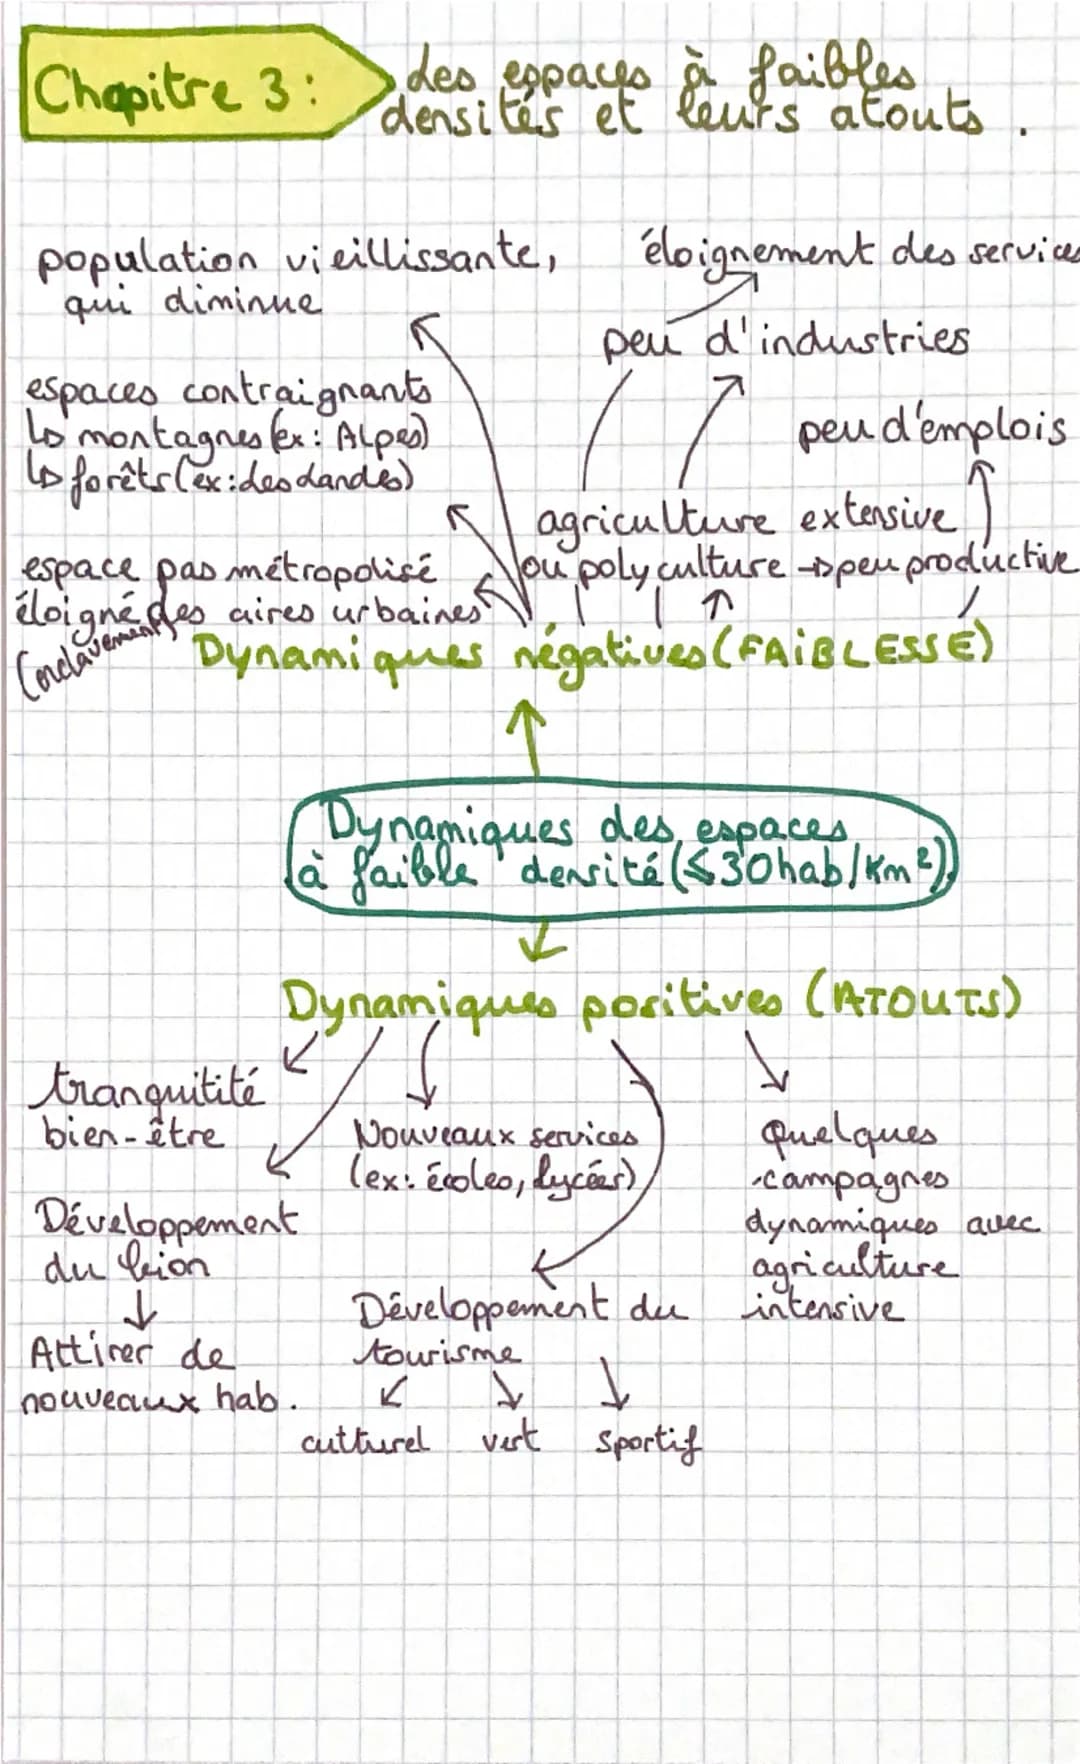 Chapitre 3 :
des espaces à faibles
densités et leurs atouts .
population vieillissante,
qui diminue
éloignement des services
peu d'industries
espaces contraignants
↳ montagnes (ex : Alpes)
↳ forêts (ex : des Landes)
peu d'emplois
agriculture extensive
ou polyculture → peu productive
espace pas métropolisé
éloigné des aires urbaines
(enclavement)
Dynamiques négatives (FAIBLESSE)
Dynamiques des espaces
à faible densité (≤ 30 hab/Km²)
Dynamiques positives (ATOUTS)
tranquitité
bien-être
Nouveaux services
(ex : écoles, lycées)
Quelques
campagnes
dynamiques avec
agriculture
intensive
Développement
du bion
Développement du
tourisme
Attirer de
nouveaux hab.
culturel vert sportif